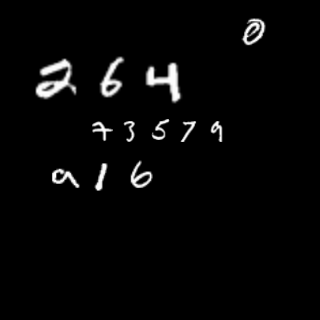 0
264
73579
916